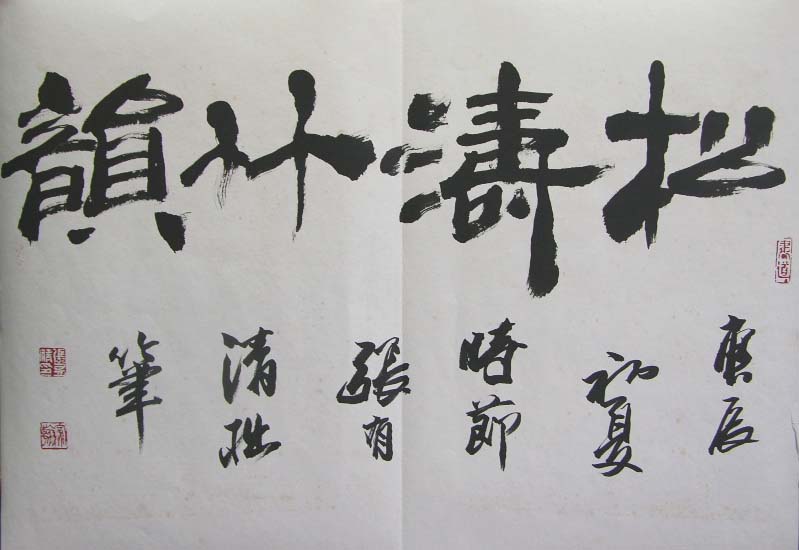 松濤竹韻
庚辰
初夏
時節
張有
清拙
筆